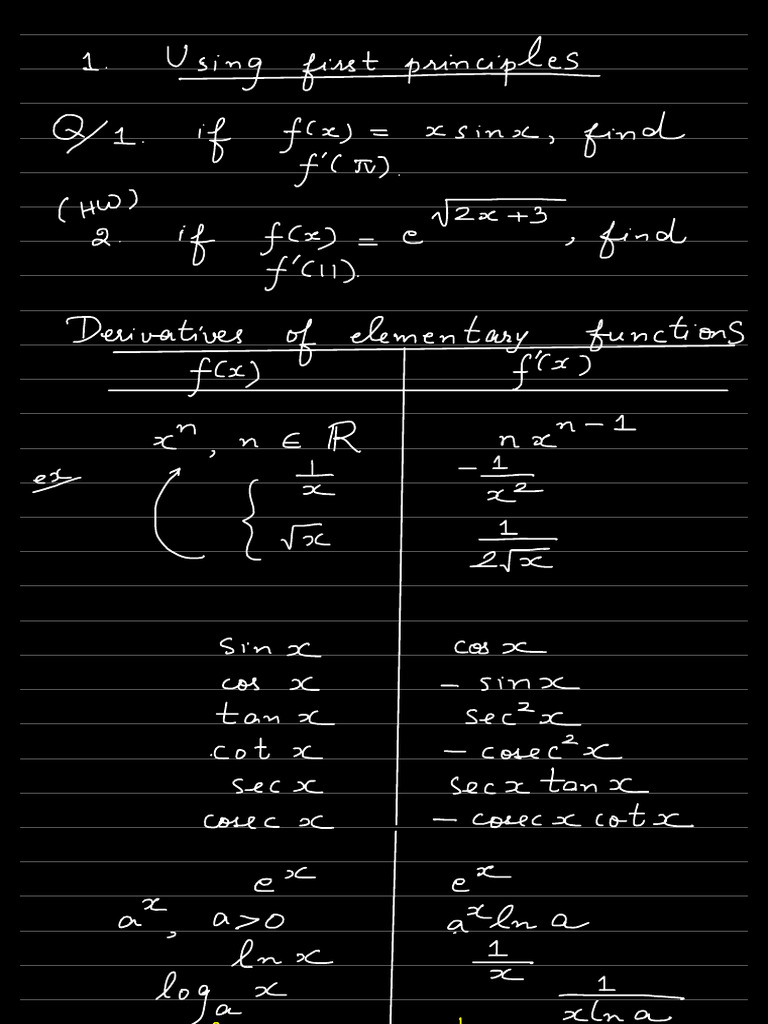 1. Using first principles
Q/1. if f(x) = x sinx, find
f'(π).
(HW)
2. if f(x) = e^√(2x+3), find
f'(11).
Derivatives of elementary functions
f(x) f'(x)
xⁿ, n ∈ ℝ n x^(n-1)
ex 1/x -1/x²
√x 1/(2√x)
sin x cos x
cos x - sinx
tan x sec²x
cot x - cosec²x
sec x sec x tan x
cosec x - cosec x cot x
e^x e^x
a^x, a>0 a^x ln a
ln x 1/x
log_a x 1/(x ln a)